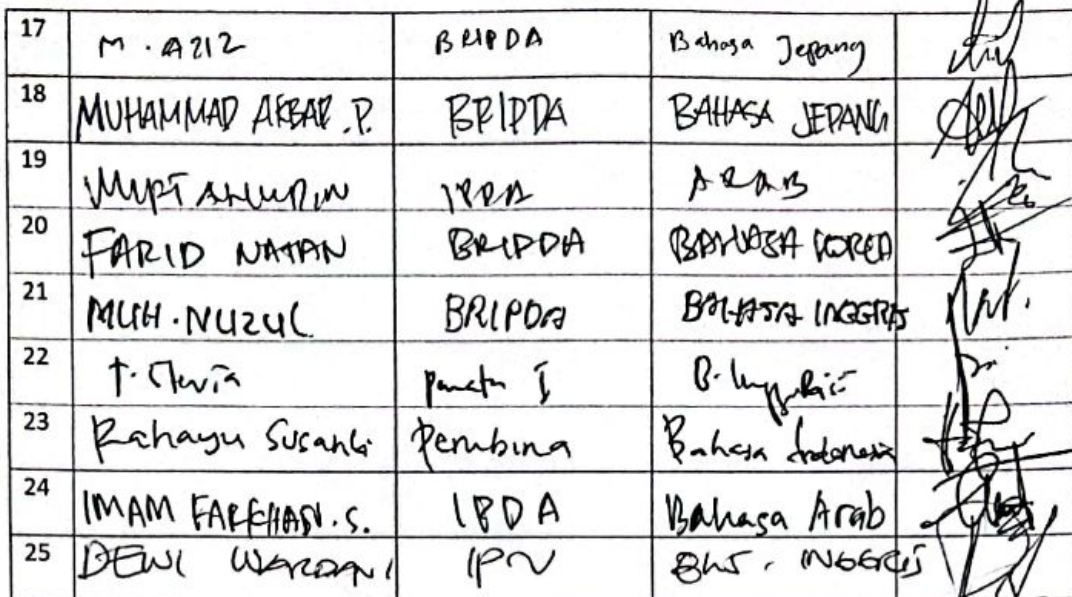 17 M. AZIZ BRIPDA Bahasa Jepang
18 MUHAMMAD AKBAR .P. BRIPDA BAHASA JEPANG
19 IPDA ARAB
20 FARID NATAN BRIPDA BAHASA KOREA
21 MUH. NUZUL BRIPDA BAHASA INGGRIS
22 I B.
23 Rahayu Susanti Pembina Bahasa Indonesia
24 IMAM FARKHAN .S. IPDA Bahasa Arab
25 DEWI WARDANI INGGRIS